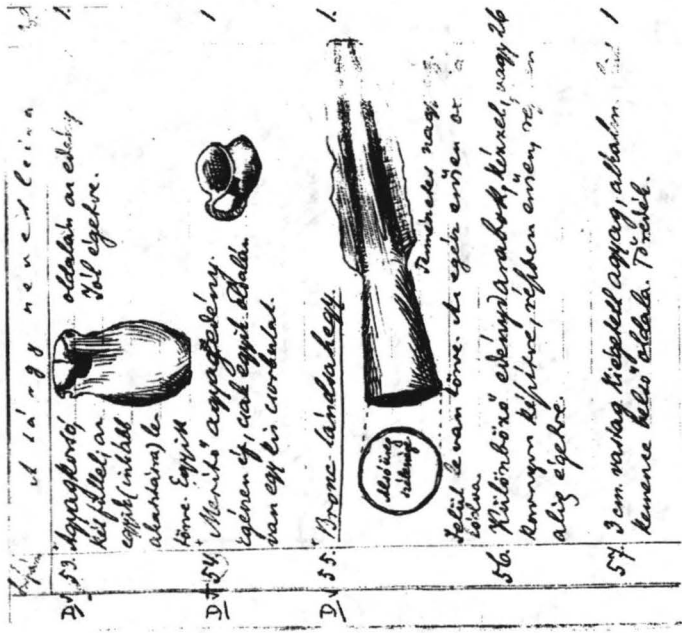 A tárgy neve és leírása
D 53. Agyagkorsó, 1.
két füllel; an
egyik (inkább
akasztásra) le
törve. Egyik
oldalán an edény
Jól égetve.
D 54. "Merítő" agyagedény. 1
Egészen ép, csak egyik oldalán
van egy kis csorbulat.
D 55. Bronc-lándsahegy. 1.
Alsó üreg
Természetes nagy.
Felül le van törve. Az egész erősen ox
56. Különböző edénydarabok, kézzel, vagy 26
korongon képítve, részben erősen, rész
alig égetve.
57. 3 cm vastag kiégetett agyag, alkalm. 1
kemence belső oldala. Töredék.